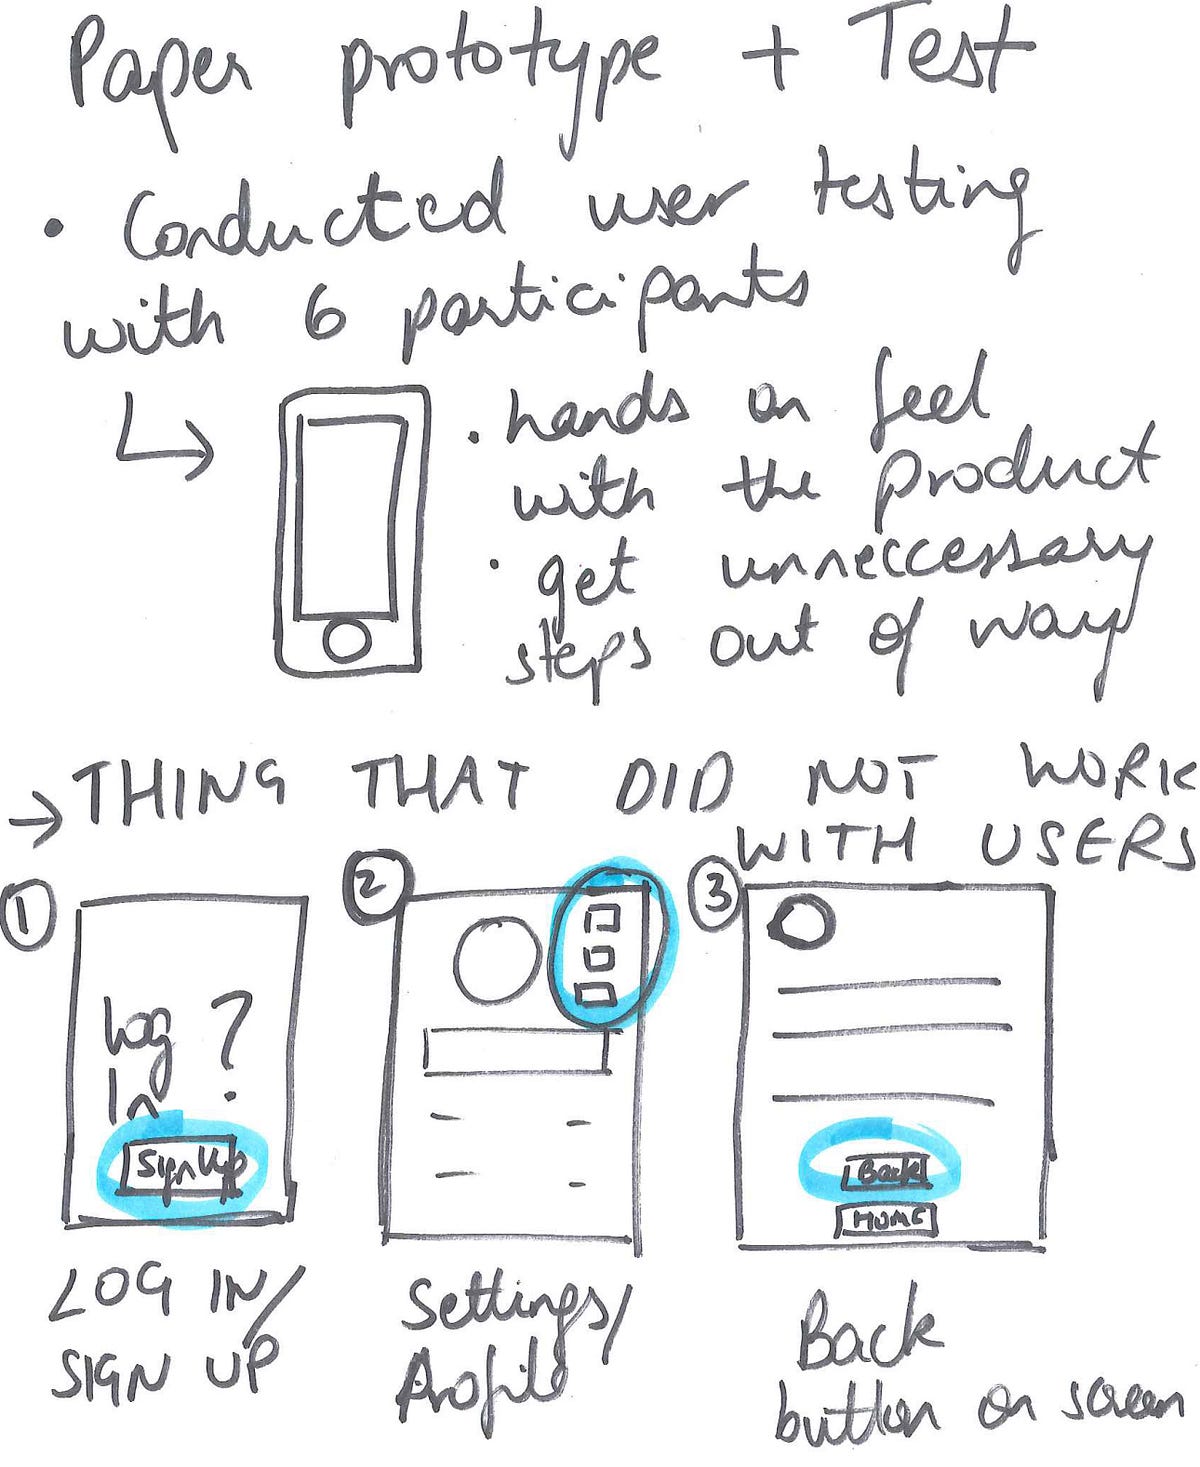 Paper prototype + Test
• Conducted user testing
with 6 participants
• hands on feel
with the product
• get unneccessary
steps out of way
→ THING THAT DID NOT WORK
WITH USERS
1
Log ?
In
Sign Up
LOG IN/
SIGN UP
2
Settings/
Profile
3
Back
HOME
Back
button on screen